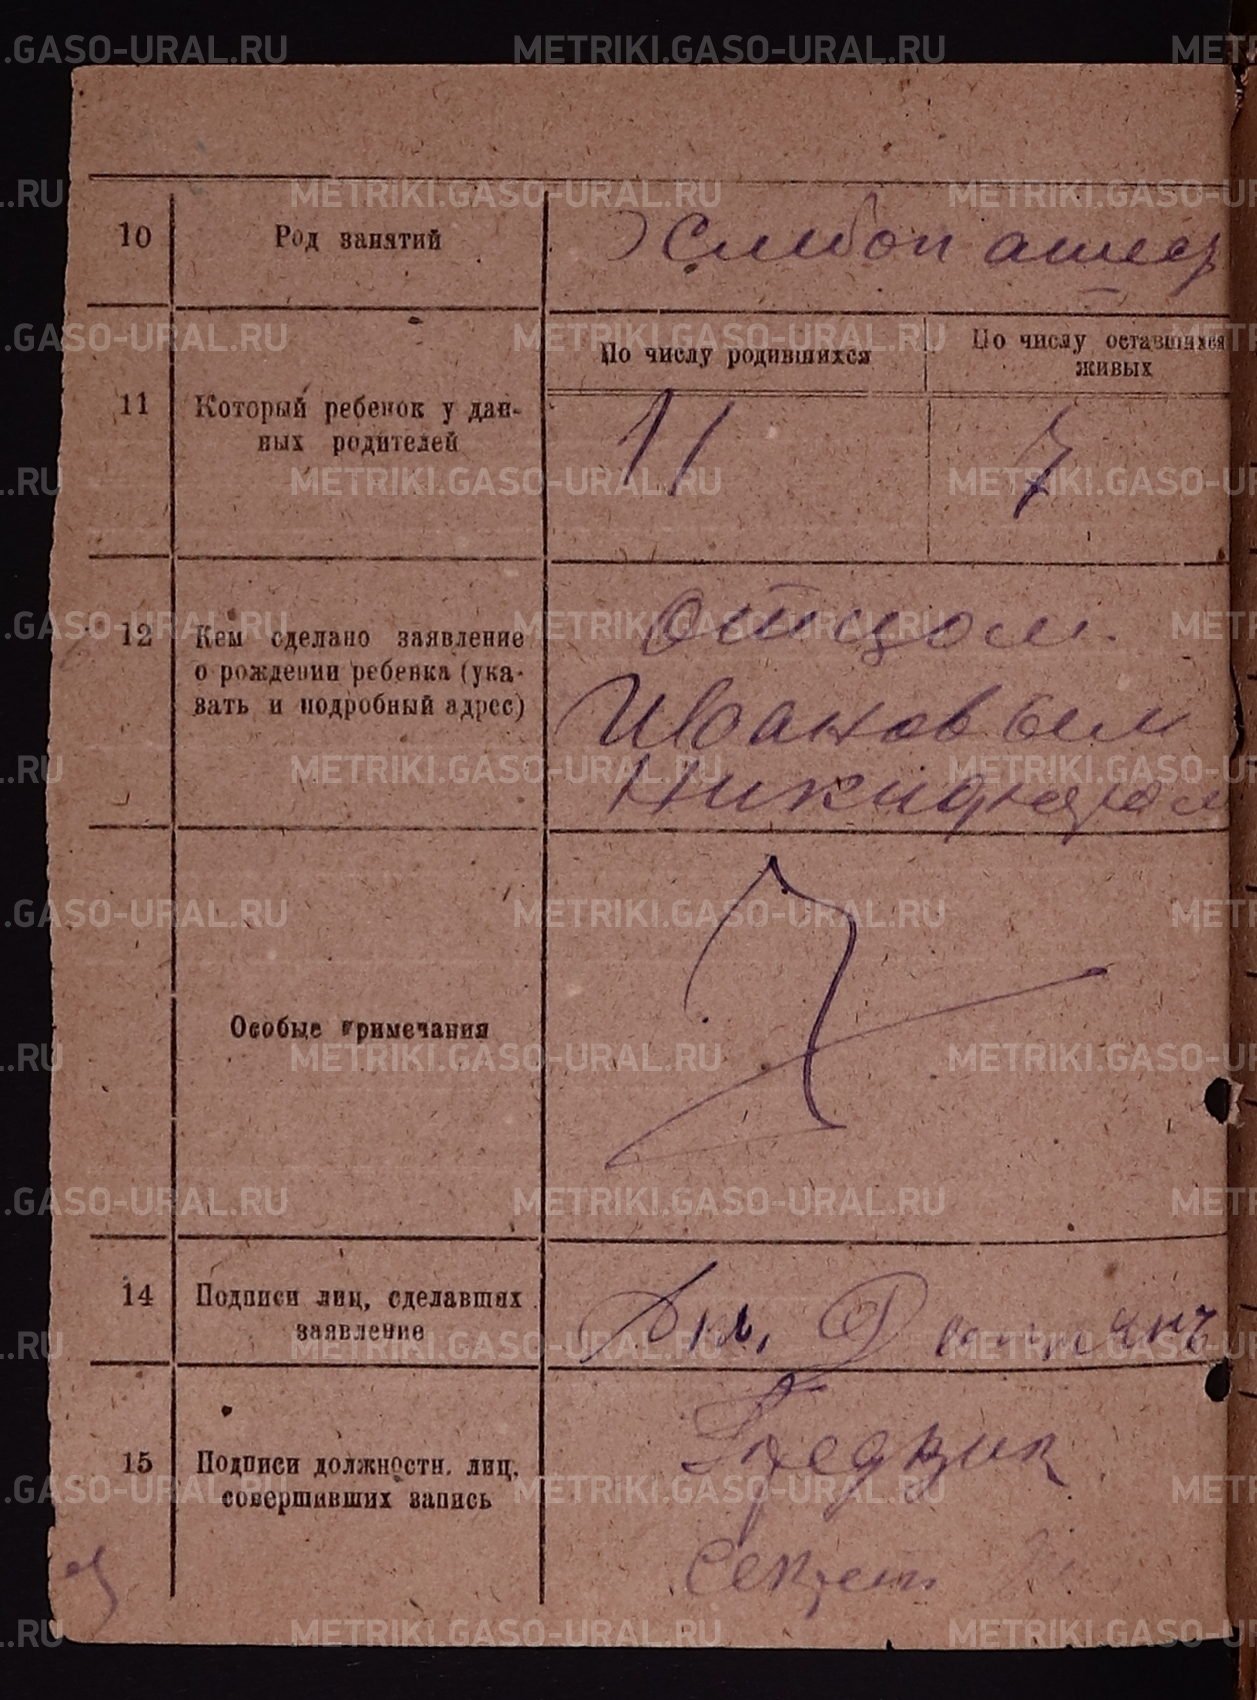 10
Род занятий
Хлибопашер
По числу родившихся
По числу оставшихся
живых
11
Который ребенок у дан-
ных родителей
11
7
12
Кем сделано заявление
о рождении ребенка (ука-
зать и подробный адрес)
отцом.
Ивановым
Никифором
Особые примечания
14
Подписи лиц, сделавших
заявление
15
Подписи должностн. лиц,
совершивших запись
Предвик
Секрет
METRIKI.GASO-URAL.RU